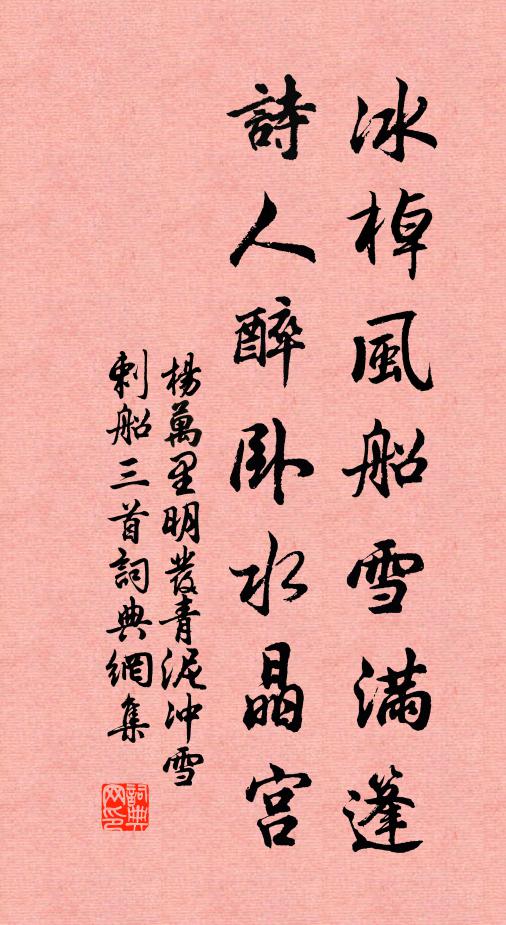 冰棹風船雪满篷
詩人醉卧水晶宮
楊萬里明發青泥冲雪
刺船三首詞典網集
詞典网印